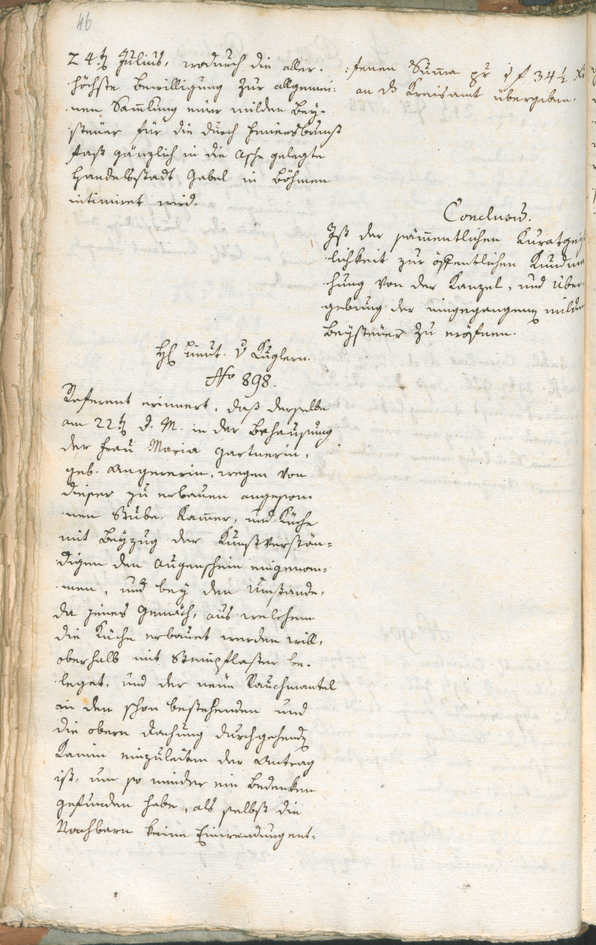 46
24t Julius, wodurch die aller-
höchste Bewilligung zur allgemei-
nen Sammlung einer milden Bey-
steuer für die durch Feuersbrunst
fast gänzlich in die Asche gelegte
Handelsstadt Gabel in Böhmen
intimirt wird.
fenen Summa pr f 34½ x
an ds Kreisamt übergeben.
Conclusum.
Ist der sämmentlichen Kuratgeist-
lichkeit zur öffentlichen Kundma-
chung von der Kanzel, und Über-
gebung der eingegangenen milden
Beysteuer zu eröfnen.
H v Kuglern
No 898.
Referent erinnert, daß derselbe
am 22t d. M. in der Behausung
der Frau Maria Gartnerin,
geb. Angererin, wegen von
dieser zu erbauen angeson-
nen Stube, Kammer, und Küche
mit Beyzug der Kunstverstän-
digen den Augenschein eingenom-
men, und bey den Umstande,
da jenes Gemach, aus welchem
die Küche erbaut werden will,
oberhalb mit Steinpflaster be-
leget, und der neue Rauchmantel
in den schon bestehenden und
die obere Dachung durchgehends
Kamin einzuleiten der Antrag
ist, um so minder ein Bedenken
gefunden habe, als selbst die
Nachbarn keine Einwendung ent-